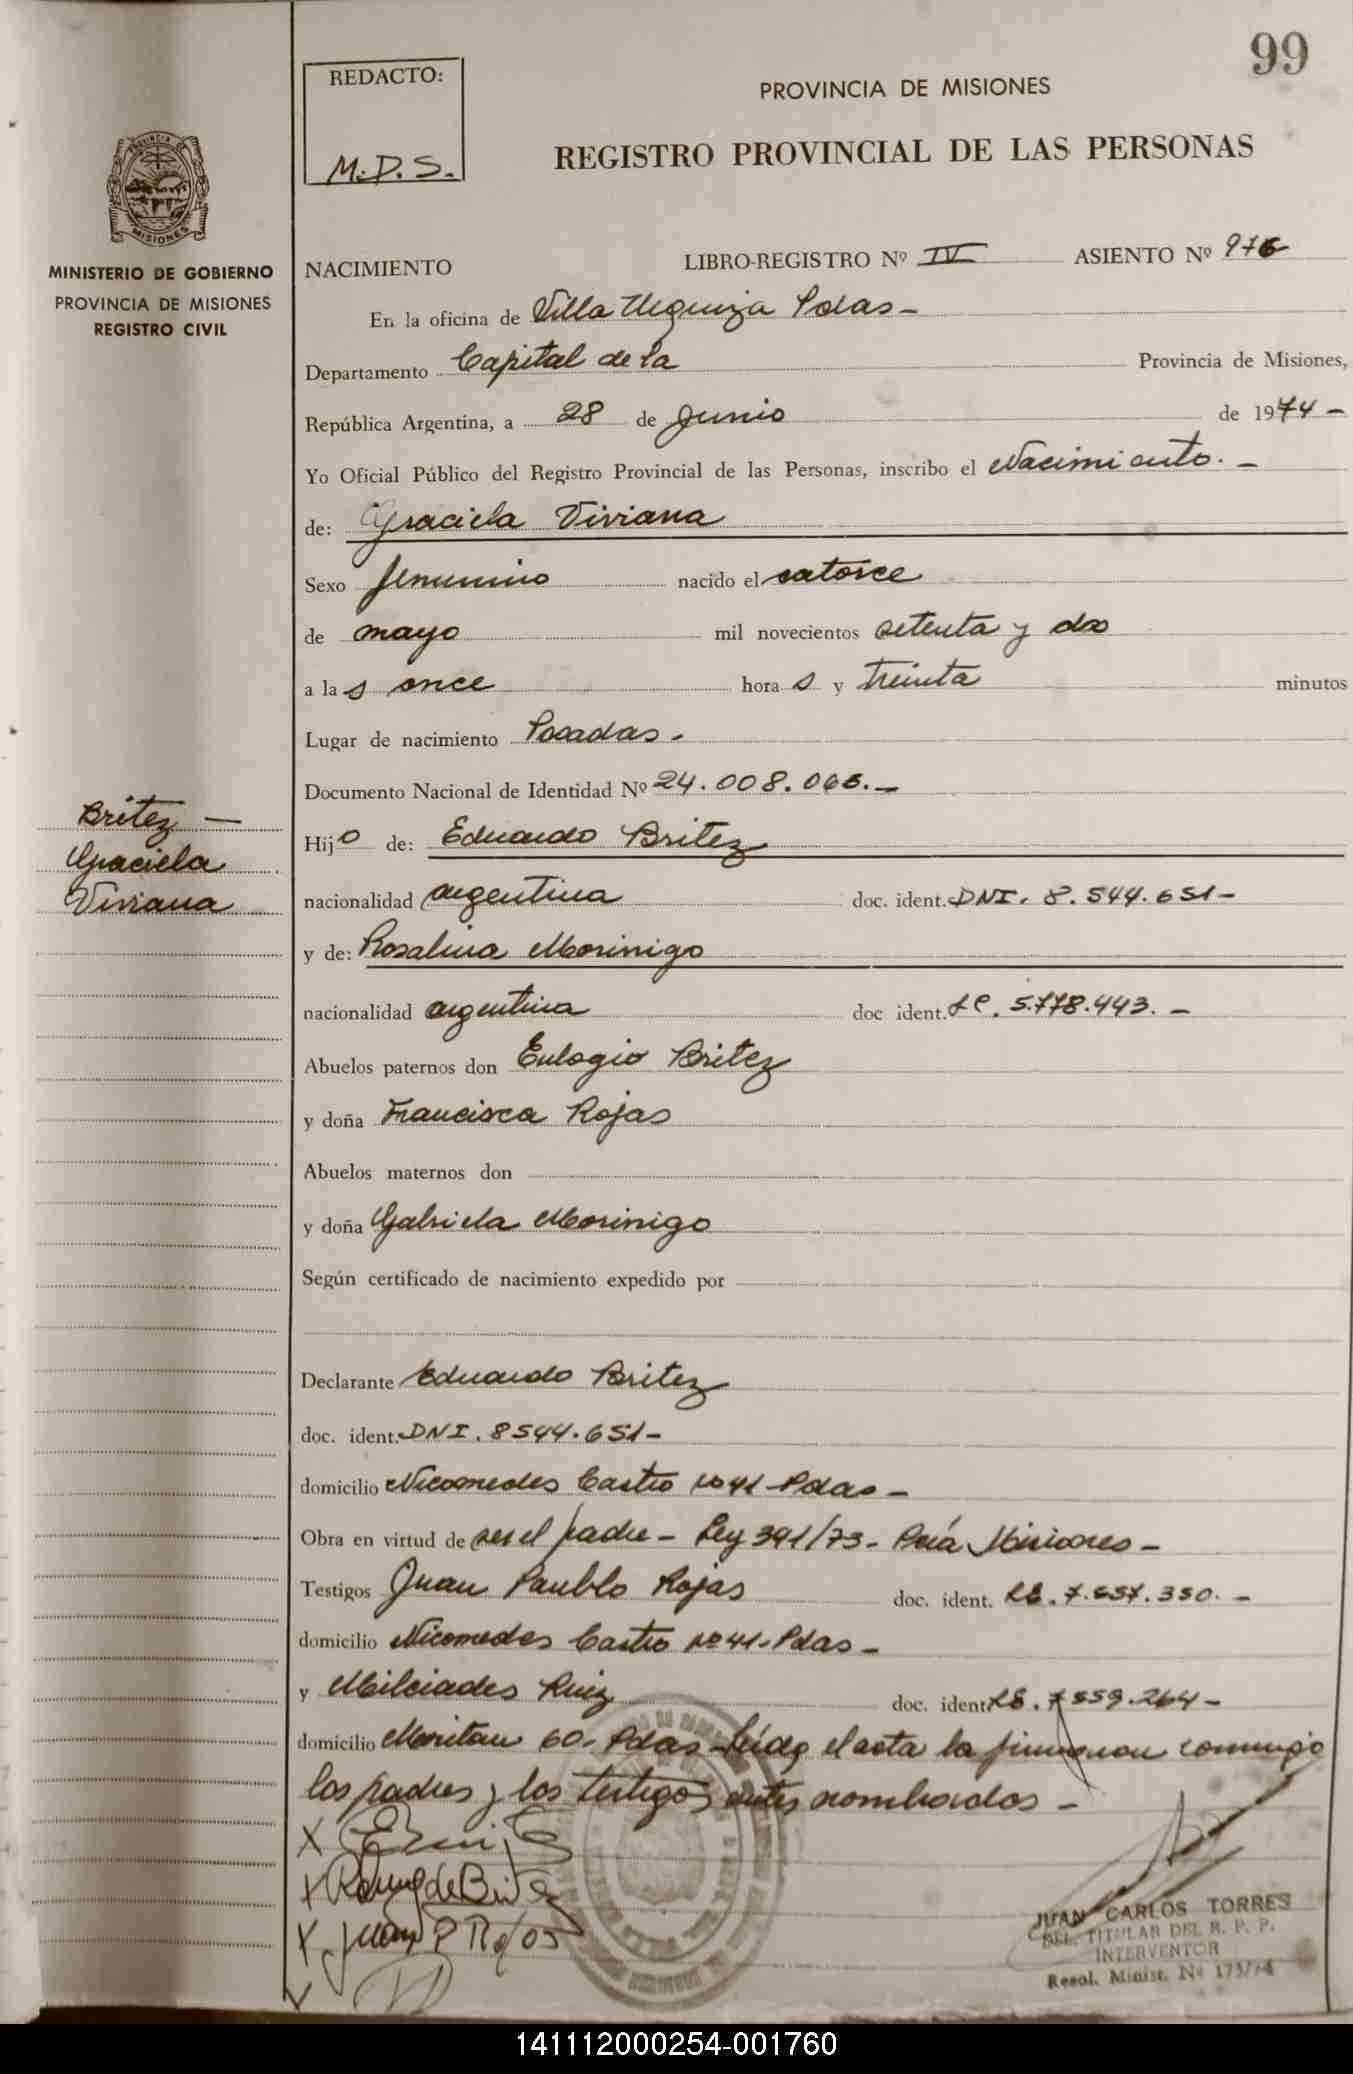 99
REDACTO:
M.D.S.
PROVINCIA DE MISIONES
REGISTRO PROVINCIAL DE LAS PERSONAS
PROVINCIA DE
MISIONES
MINISTERIO DE GOBIERNO
PROVINCIA DE MISIONES
REGISTRO CIVIL
NACIMIENTO LIBRO-REGISTRO Nº IV ASIENTO Nº 976
En la oficina de Villa Urquiza Pdas-
Departamento Capital de la Provincia de Misiones,
República Argentina, a 28 de Junio de 1974-
Yo Oficial Público del Registro Provincial de las Personas, inscribo el Nacimiento.-
de: Graciela Viviana
Sexo femenino nacido el catorce
de mayo mil novecientos setenta y dos
a las once horas y treinta minutos
Lugar de nacimiento Posadas.
Documento Nacional de Identidad Nº 24.008.066.-
Britez-
Graciela
Viviana
Hijo de: Eduardo Britez
nacionalidad argentina doc. ident. DNI. 8.544.651-
y de: Rosalina Morinigo
nacionalidad argentina doc ident. LC. 5.778.443.-
Abuelos paternos don Eulogio Britez
y doña Francisca Rojas
Abuelos maternos don
y doña Gabriela Morinigo
Según certificado de nacimiento expedido por
Declarante Eduardo Britez
doc. ident. DNI. 8544.651-
domicilio Nicomedes Castro Nº 41-Pdas-
Obra en virtud de ser el padre- Ley 391/73- Pcia Misiones-
Testigos Juan Paublo Rojas doc. ident. LE. 7.657.350.-
domicilio Nicomedes Castro Nº 41-Pdas-
y Milciades Ruiz doc. ident. LE. 7559.264-
domicilio Moritan 60- Pdas-Leida el acta la firmaron conmigo
los padres y los testigos antes nombrados-
X
X R de Britez
X Juan P Rojas
JUAN CARLOS TORRES
DEL. TITULAR DEL R. P. P.
INTERVENTOR
Resol. Minist. Nº 173/74
141112000254-001760